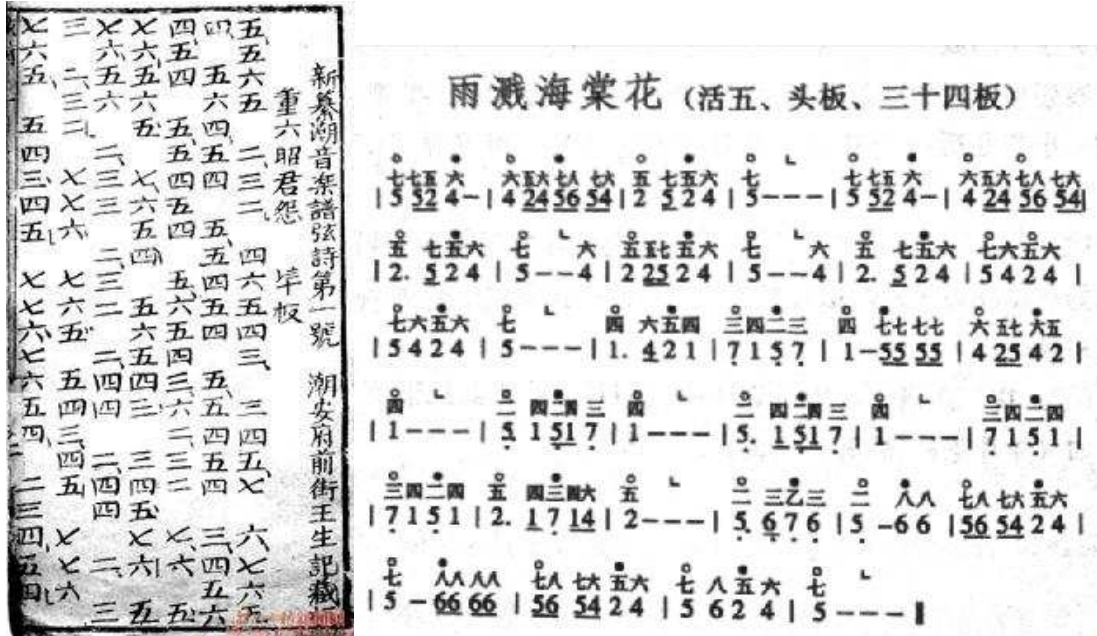 新纂潮音楽譜弦詩第一號 潮安府前街王生記藏
重六昭君怨 板
五五六五二三二四六五四三三四五七六七六五
四五六四五四二五五四五四五五四五四三四五六
四五四五五四五四五六五四三六二三二七六五
七六五六五七六五四五六五四三三四五七六五
七六五六二三三二三二二四四二四四二三
三二三二七七六七六五五四三四五七七六
七六五五四三四五七七六七六五四二三四五四
雨溅海棠花（活五、头板、三十四板）
七七五六 六五六七八七六 五七五六 七 七七五六 六五六七八七六
| 5 52 4- | 4 24 56 54 | 2 5 2 4 | 5 - - - | 5 52 4- | 4 24 56 54 |
五 七五六 七 六 五五七五六 七 六 五 七五六 七六五六
| 2. 5 2 4 | 5 - - 4 | 2 25 2 4 | 5 - - 4 | 2. 5 2 4 | 5 4 2 4 |
七六五六 七 四 六五四 三四二三 四 七七七七 六五七六五
| 5 4 2 4 | 5 - - - | 1. 4 2 1 | 7 1 5 7 | 1 - 55 55 | 4 25 4 2 |
四 二 四二四三 四 二 四二四三 四 三四二四
| 1 - - - | 5. 1 51 7 | 1 - - - | 5. 1 51 7 | 1 - - - | 7 1 5 1 |
三四二四 五 四三四六 五 二 三乙三 二 八八 七八七六五六
| 7 1 5 1 | 2. 1 7 14 | 2 - - - | 5. 6 7 6 | 5 - 6 6 | 56 54 2 4 |
七 八八八八 七八七六五六 七八五六 七
| 5 - 66 66 | 56 54 2 4 | 5 6 2 4 | 5 - - - ‖